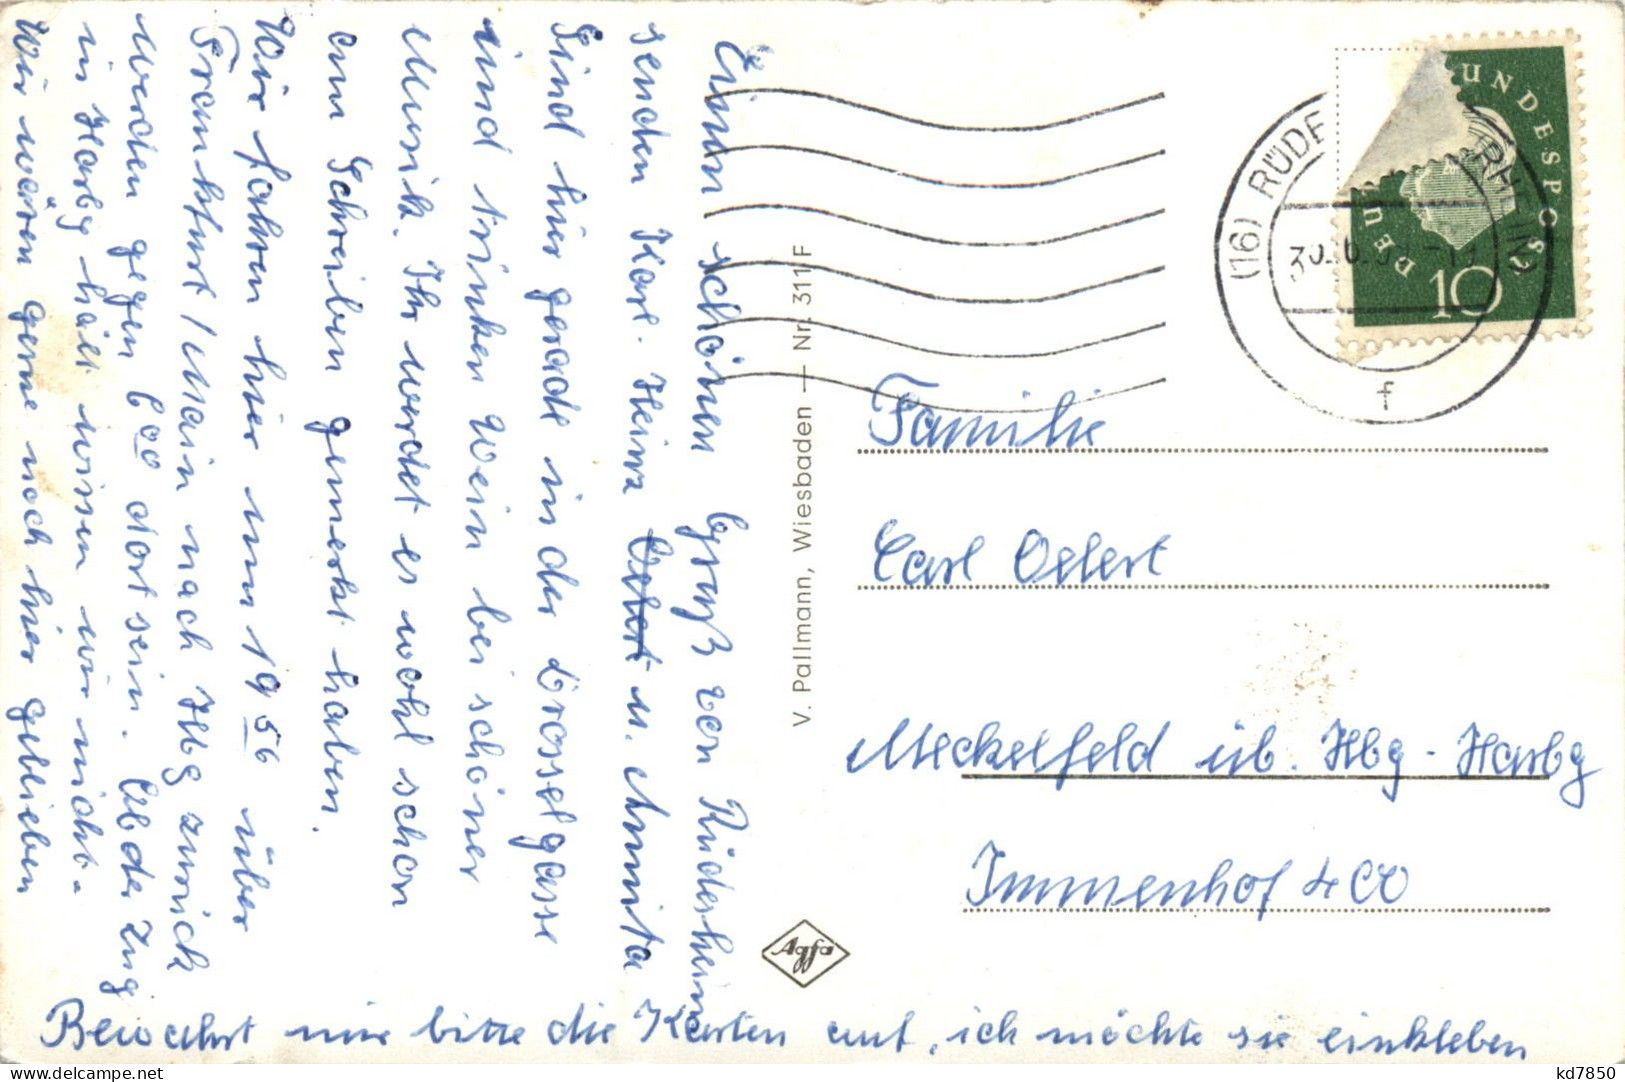 Einen schönen Gruß von Rüdesheim
senden Karl. Heinz Oelert u. Annita
Sind hier gerade in der Drosselgasse
und trinken Wein bei schöner
Musik. Ihr werdet es wohl schon
am Schreiben gemerkt haben.
Wir fahren hier um 19 56 über
Frankfurt / Main nach Hbg zurück
werden gegen 6 00 dort sein. Ob der Zug
in Harbg hält wissen wir nicht.
Wir wären gerne noch hier geblieben
Bewahrt mir bitte die Karten auf, ich möchte sie einkleben
V. Pallmann, Wiesbaden — Nr. 311 F
Agfa
(16) RÜDE RHEIN
f
UNDESPOS
DEU
10
Familie
Carl Oelert
Meckelfeld üb. Hbg - Harbg
Immenhof 400
kd7850